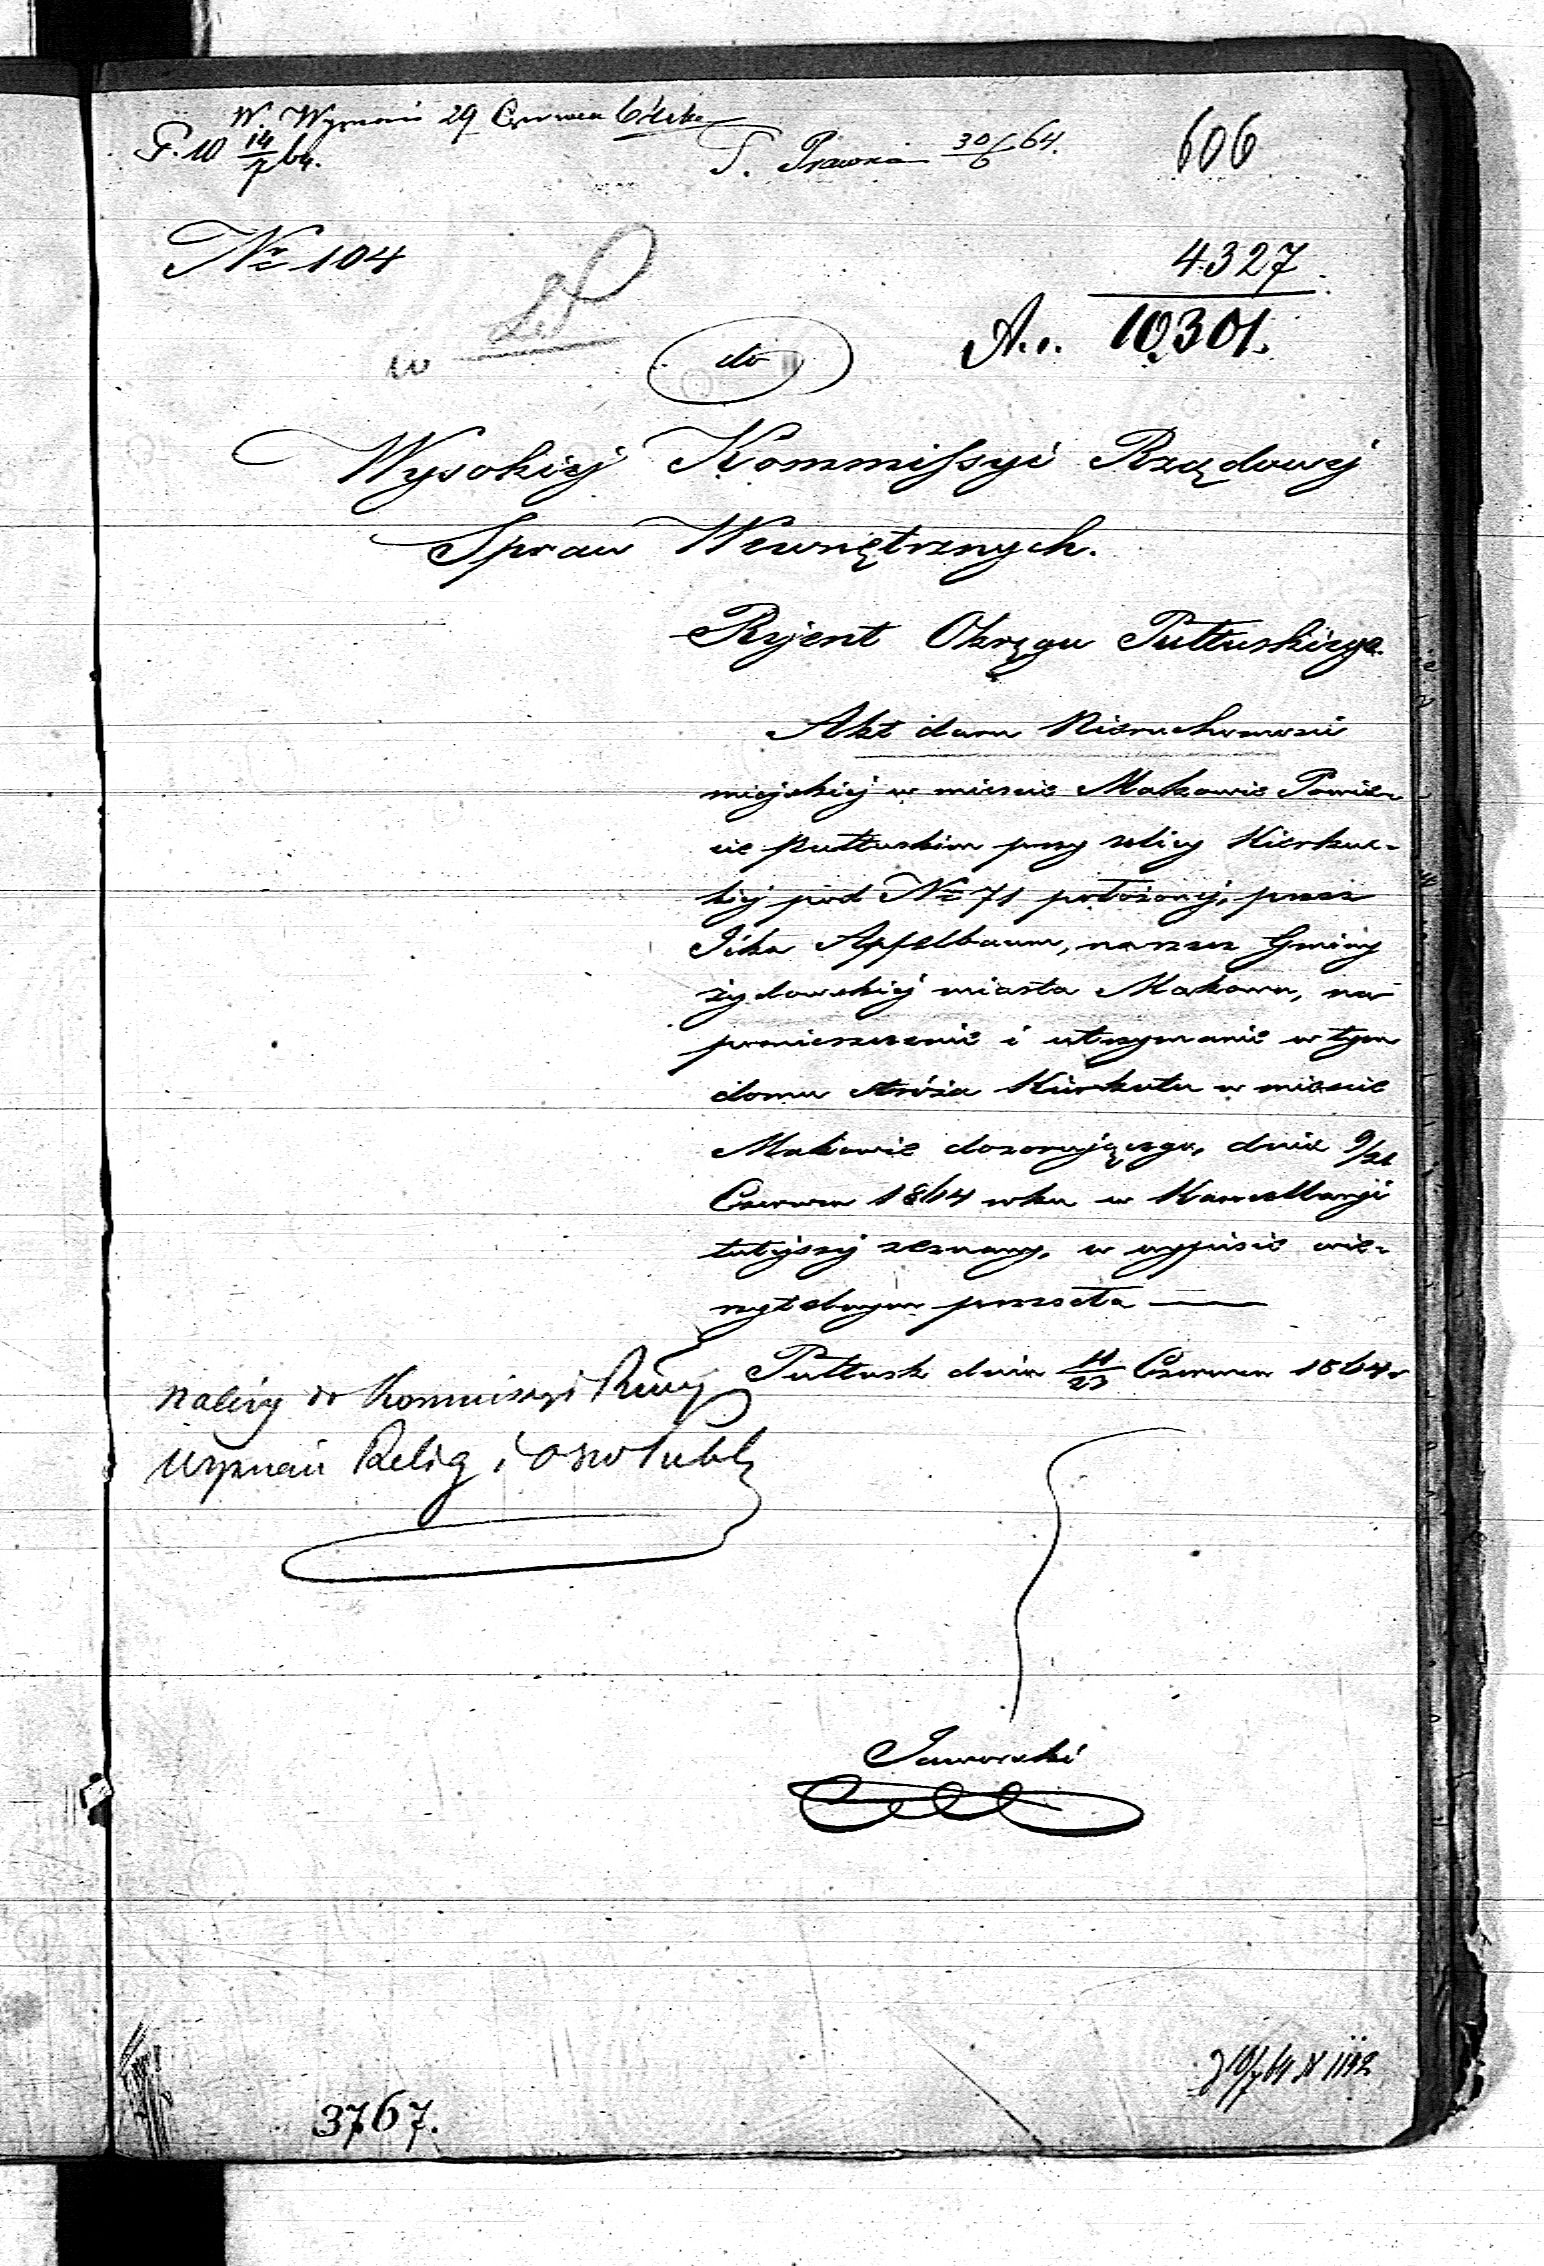 W. Wyznań 29 Czerwca 64 rku
P. 10 14/7 64.
P. Prawna 30/6 64.
606
Nr 104
4327
A.. 10301.
w
do
Wysokiej Kommissyi Rządowej
Spraw Wewnętrznych.
Rejent Okręgu Pułtuskiego.
Akt daru Nieruchomości
miejskiej w mieście Makowie Powie-
cie Pułtuskim przy ulicy Kierkuc-
kiej pod Nr 71 położonej, przez
Icka Apfelbaum, na rzecz Gminy
żydowskiej miasta Makowa, na
pomieszczenie i utrzymanie w tym
domu stróża Kirkutu w mieście
Makowie dozorującego, dnia 9/21
Czerwca 1864 roku w Kancellaryi
tutejszej zeznany, w wypisie wie-
rzytelnym przesyła
Pułtusk dnia 11/23 Czerwca 1864 r
Należy do Kommissyi Rząd
Wyznań Relig i Ośw Publ
Jaworski
3767.